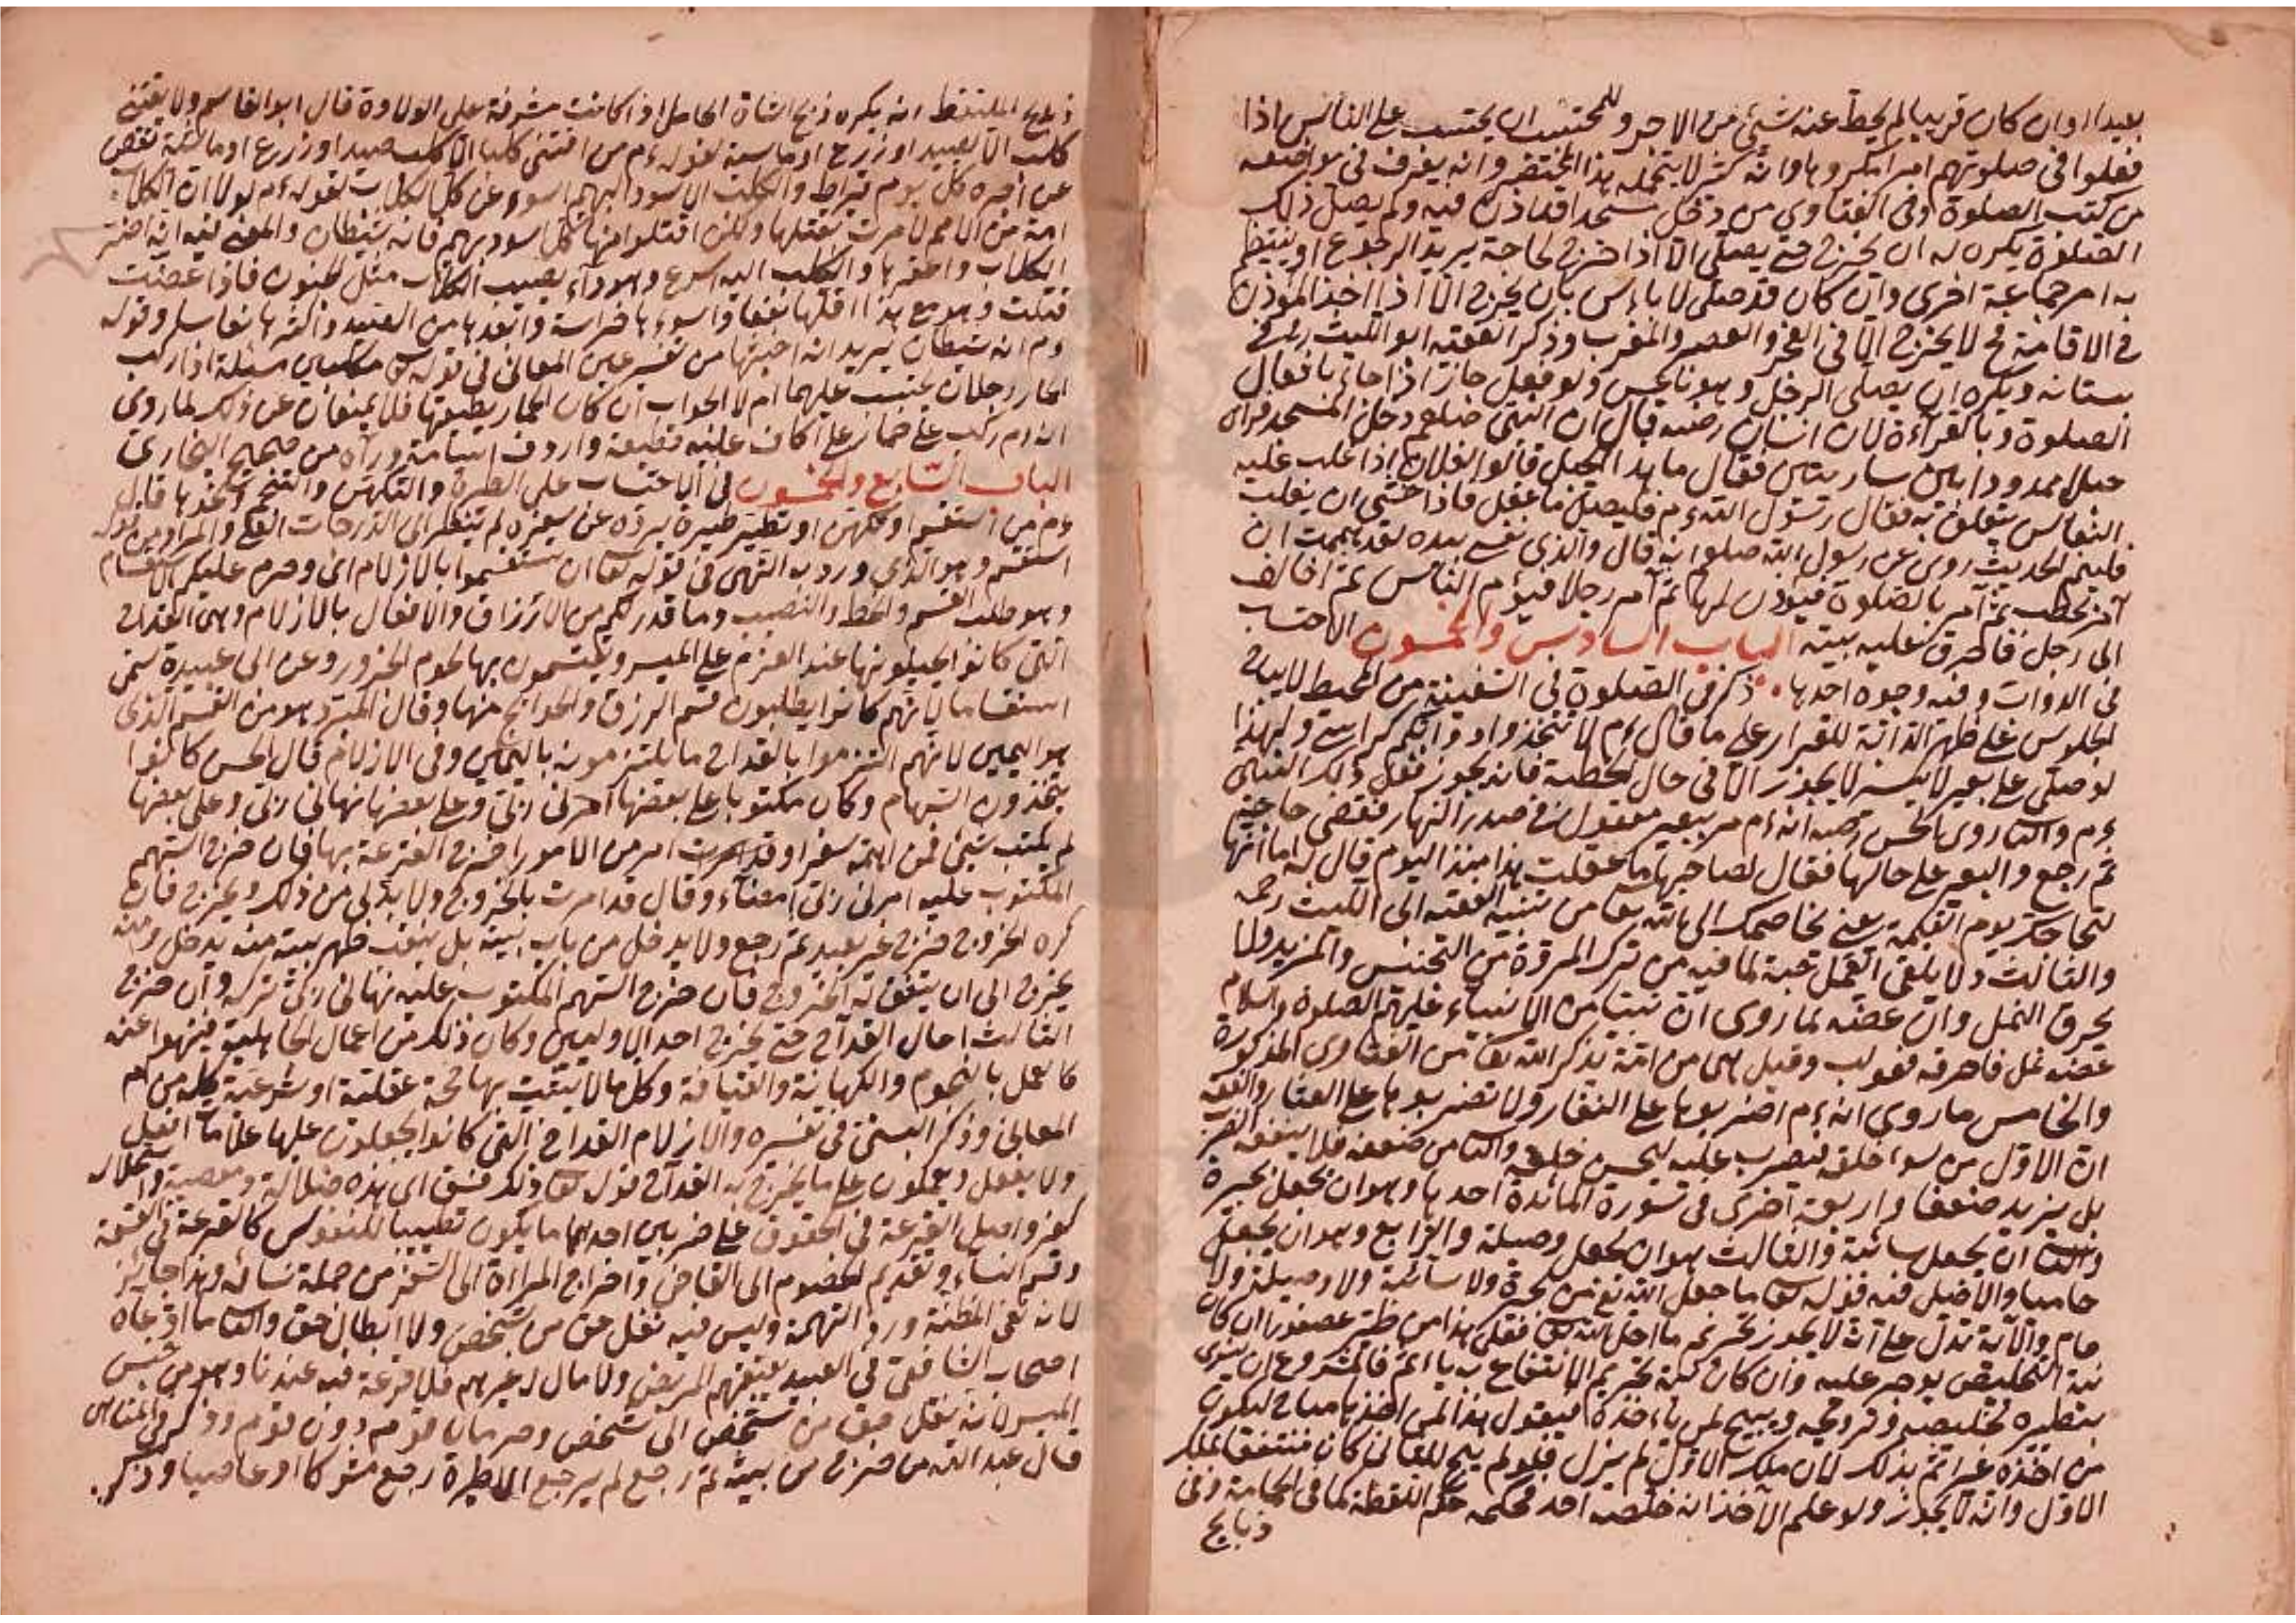 بعيدا وان كان قريبا لم يحط عنه شئ من الاجر وللمحتسب ان يحتسب على الناس اذا
فعلوا فى صلوتهم امرا مكروها وانه كثير لا يتحمله هذا المختصر وانه يعرف فى مواضعه
من كتب الصلوة وفى الفتاوى من دخل مسجدا قد اذن فيه ولم يصل ذلك
الصلوة يكره له ان يخرج حتى يصلى الا اذا خرج لحاجة يريد الرجوع او ينتظم
به امر جماعة اخرى وان كان قد صلى لا باس بان يخرج الا اذا اخذ المؤذن
فى الاقامة فح لا يخرج الا فى الفجر والعصر والمغرب وذكر الفقيه ابو الليث رح فى
بستانه ويكره ان يصلى الرجل وهو ناعس ولو فعل جاز اذا جاء بافعال
الصلوة وبالقراءة لان انسان رضه قال ان النبى صلعم دخل المسجد فراى
حبلا ممدودا بين ساريتين فقال ما هذا الحبل قالوا لفلانة اذا غلب عليه
النعاس يتعلق به فقال رسول الله ءم فليصل ما عقل فاذا خشى ان يغلب
فلينم الحديث روى عن رسول الله صلعم انه قال والذى نفسى بيده لقد هممت ان
آمر بحطب ثم آمر بالصلوة فيؤذن لها ثم آمر رجلا فيؤم الناس ثم اخالف
الى رجل فاحرق عليه بيته الباب السادس والخمسون الاحتساب
فى الدواب وفيه وجوه احدها ذكر فى الصلوة فى السفينة من المحيط لا يباح
الجلوس على ظهر الدابة للقرار على ما قال ءم لا تتخذوا دوابكم كراسى ولهذا
لو صلى على بعير لا يسير لا يجوز الا فى حال الخطبة فانه يجوز فعل ذلك النبى
ءم والثا روى الحسن رضه انه ءم مر ببعير معقول فى صدر النهار فقضى حاجته
ثم رجع والبعير على حالها فقال لصاحبها ما عقلت هذا منذ اليوم قال له اما انها
لتحاجك يوم القيمة يعنى تخاصمك الى الله تعا من تنبيه الفقيه ابى الليث رحمه
والثالث ولا يلقى القمل حية لما فيه من ترك المروة من التجنيس والمزيد ولا
يحرق النمل وان عضته لما روى ان نبيا من الانبياء عليهم الصلوة والسلام
عضته نمل فاحرقه فعوتب وقيل هى من امة تذكر الله تعا من الفتاوى المذكورة
والخامس ما روى انه ءم اضربوها على النفار ولا تضربوها على العثار والفقه
ان الاول من سوء خلقه فيضرب عليه ليحسن خلقه والثا من ضعفه فلا ينفعه الضرب
بل يزيد ضعفا واربعة اخرى فى سورة المائدة احدها وهو ان يجعل بحيرة
والثا ان يجعل سائبة والثالث هو ان يجعل وصيلة والرابع وهو ان يجعل
حاميا والاصل فيه قوله تعا ما جعل الله من بحيرة ولا سائبة ولا وصيلة ولا
حام والآية تدل على انه لا يجوز تحريم ما احل الله تعا فعلى هذا من طير عصفورا ان كان
نية التخليص يوجر عليه وان كان نية تحريم الانتفاع به ياثم فالمشروع ان ينوى
بتطيره تخليصه وترويحه ويبيح لمن ياخذه فيقول هذا لمن اخذها مباح ليكون
من اخذه غير آثم بذلك لان ملك الاول لم يزل فلو لم يبح للثانى كان منتفعا بملك
الاول وانه لا يجوز ولو علم الآخذ انه خلصه احد فحكمه حكم اللقطة كما فى الحمامة وفى
ذبايح
ذبايح الملتقط انه يكره ذبح الشاة الحامل اذا كانت مشرفة على الولادة قال ابو القاسم ولا يقتنى
كلب الا لصيد او زرع او ماشية لقوله ءم من اقتنى كلبا الا كلب صيد او زرع او ماشية نقص
من اجره كل يوم قيراط والكلب الاسود البهيم اسوء من كل الكلاب لقوله ءم لولا ان الكلاب
امة من الامم لامرت بقتلها ولكن اقتلوا منها كل اسود بهيم فانه شيطان والمعنى فيه انه اضر
الكلاب واعقرها والكلب اليه اسرع وهو داء يصيب الكلاب مثل الجنون فاذا عضت
قتلت وهو مع هذا اقلها نفعا واسوءها حراسة وابعدها من الصيد واكثرها نعاسا وقوله
ءم انه شيطان يريد انه اخبثها من تفسير عين المعانى فى قوله تعا مكلبين مسئلة اذا ركب
الحمار رجلان يحتسب عليهما ام لا الجواب ان كان الحمار يطيقها فلا يمنعان عن ذلك لما روى
انه ءم ركب على حمار على اكاف عليه قطيفة واردف اسامة وراه من صحيح البخارى
الباب السابع والخمسون فى الاحتساب على الطيرة والتكهن والتنجم ونحوها قال
ءم من استقسم او تكهن او تطير طيرة يرده عن سفره لم ينظر الى الدرجات العلى والمراد من قوله
استقسم وهو الذى ورد به النهى فى قوله تعا ان تستقسموا بالازلام اى وحرم عليكم الاستقسام
وهو طلب القسم والحظ والنصيب وما قدر لكم من الارزاق والافعال بالازلام وهى القداح
التى كانوا يجيلونها عند العزم على الميسر ويقتسمون بها لحوم الجزور وعن ابى عبيدة سمى
استقساما لانهم كانوا يطلبون قسم الرزق والحوايج منها وقال المبرد هو من القسم الذى
هو اليمين لانهم التزموا بالقداح ما يلتزمونه باليمين وفى الازلام قال الحسن كانوا
يتخذون السهام وكان مكتوبا على بعضها امرنى ربى وعلى بعضها نهانى ربى وعلى بعضها
لم يكتب شئ فمن اهمه سفرا وقد امر من الامور اخرج القرعة بها فان خرج السهم
المكتوب عليه امرنى ربى امضاء وقال قد امرت بالخروج ولا بد لى من ذلك ويخرج فان
كره الخروج خرج غير بعيد ثم رجع ولا يدخل من باب بيته بل ينقب ظهر بيته منه يدخل ومنه
يخرج الى ان يتفق له الخروج فان خرج السهم المكتوب عليه نهانى ربى تركه وان خرج
الثالث احال القداح حتى يخرج احد الاولين وكان ذلك من اعمال الجاهلية فينهوا عنه
كالعمل بالنجوم والكهانة والقيافة وكل ما لا يثبت بها حجة عقلية او شرعية كله من ام
المعانى وذكر البستى فى تفسيره والازلام القداح التى كانوا يجعلون عليها علاما افعل
ولا تفعل ويعملون على ما يخرج به القداح قوله تعا ذلك فسق اى هذه ضلالة ومعصية واستحلاله
كفر واصل القرعة فى الحقوق على ضربين احدهما ما يكون تطييبا للنفوس كالقرعة فى القسمة
وقسم النساء وتقديم الخصوم الى القاضى واخراج المراة الى السفر من جملة نسائه وهذا جائز
لانه نفى المظنة ورد التهمة وليس فيه نقل حق من شخص ولا ابطال حق والثا ما ادعاه
اصحاب الشافعى فى العبيد يعتقهم المريض ولا مال له غيرهم فلا قرعة فيه عندنا وهو من جنس
الميسر لانه ينقل حق من شخص الى شخص وحرمان قوم دون قوم وذكر فى المتقى
قال عبد الله من خرج من بيته ثم رجع لم يرجع الا لطيرة رجع مشركا او عاصيا وذكر